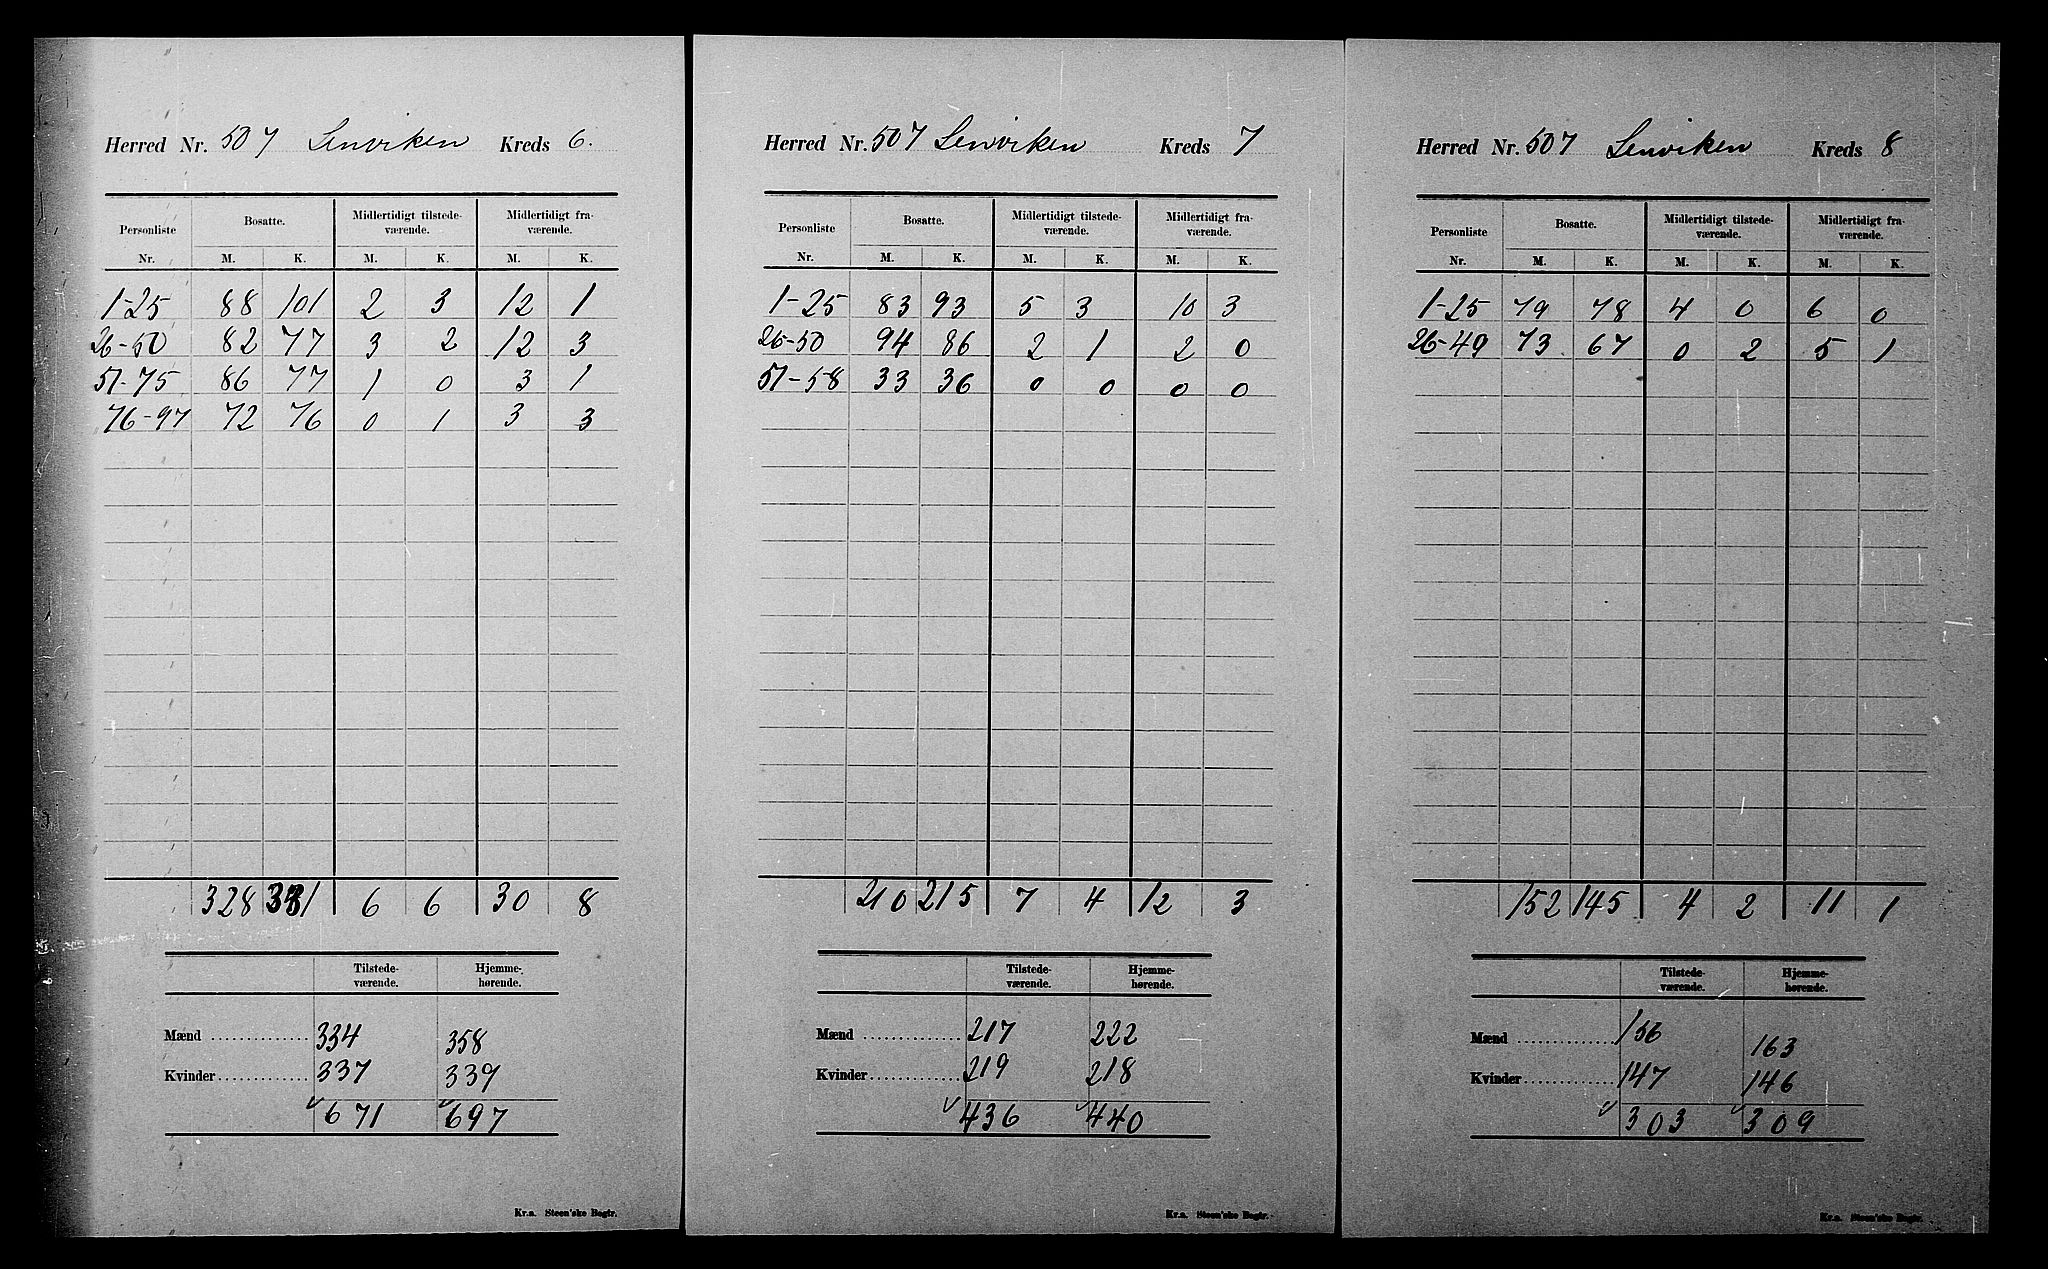 Herred Nr. 507 Lenviken Kreds 6.
Personliste Bosatte. Midlertidigt tilstede- Midlertidigt fra-
værende. værende.
Nr. M. K. M. K. M. K.
1-25 88 101 2 3 12 1
26-50 82 77 3 2 12 3
51-75 86 77 1 0 3 1
76-97 72 76 0 1 3 3
328 331 6 6 30 8
Tilstede- Hjemme-
værende. hørende.
Mænd 334 358
Kvinder 337 339
671 697
Kr.a. Steen'ske Bogtr.
Herred Nr. 507 Lenviken Kreds 7
Personliste Bosatte. Midlertidigt tilstede- Midlertidigt fra-
værende. værende.
Nr. M. K. M. K. M. K.
1-25 83 93 5 3 10 3
26-50 94 86 2 1 2 0
51-58 33 36 0 0 0 0
210 215 7 4 12 3
Tilstede- Hjemme-
værende. hørende.
Mænd 217 222
Kvinder 219 218
436 440
Kr.a. Steen'ske Bogtr.
Herred Nr. 507 Lenviken Kreds 8
Personliste Bosatte. Midlertidigt tilstede- Midlertidigt fra-
værende. værende.
Nr. M. K. M. K. M. K.
1-25 79 78 4 0 6 0
26-49 73 67 0 2 5 1
152 145 4 2 11 1
Tilstede- Hjemme-
værende. hørende.
Mænd 156 163
Kvinder 147 146
303 309
Kr.a. Steen'ske Bogtr.